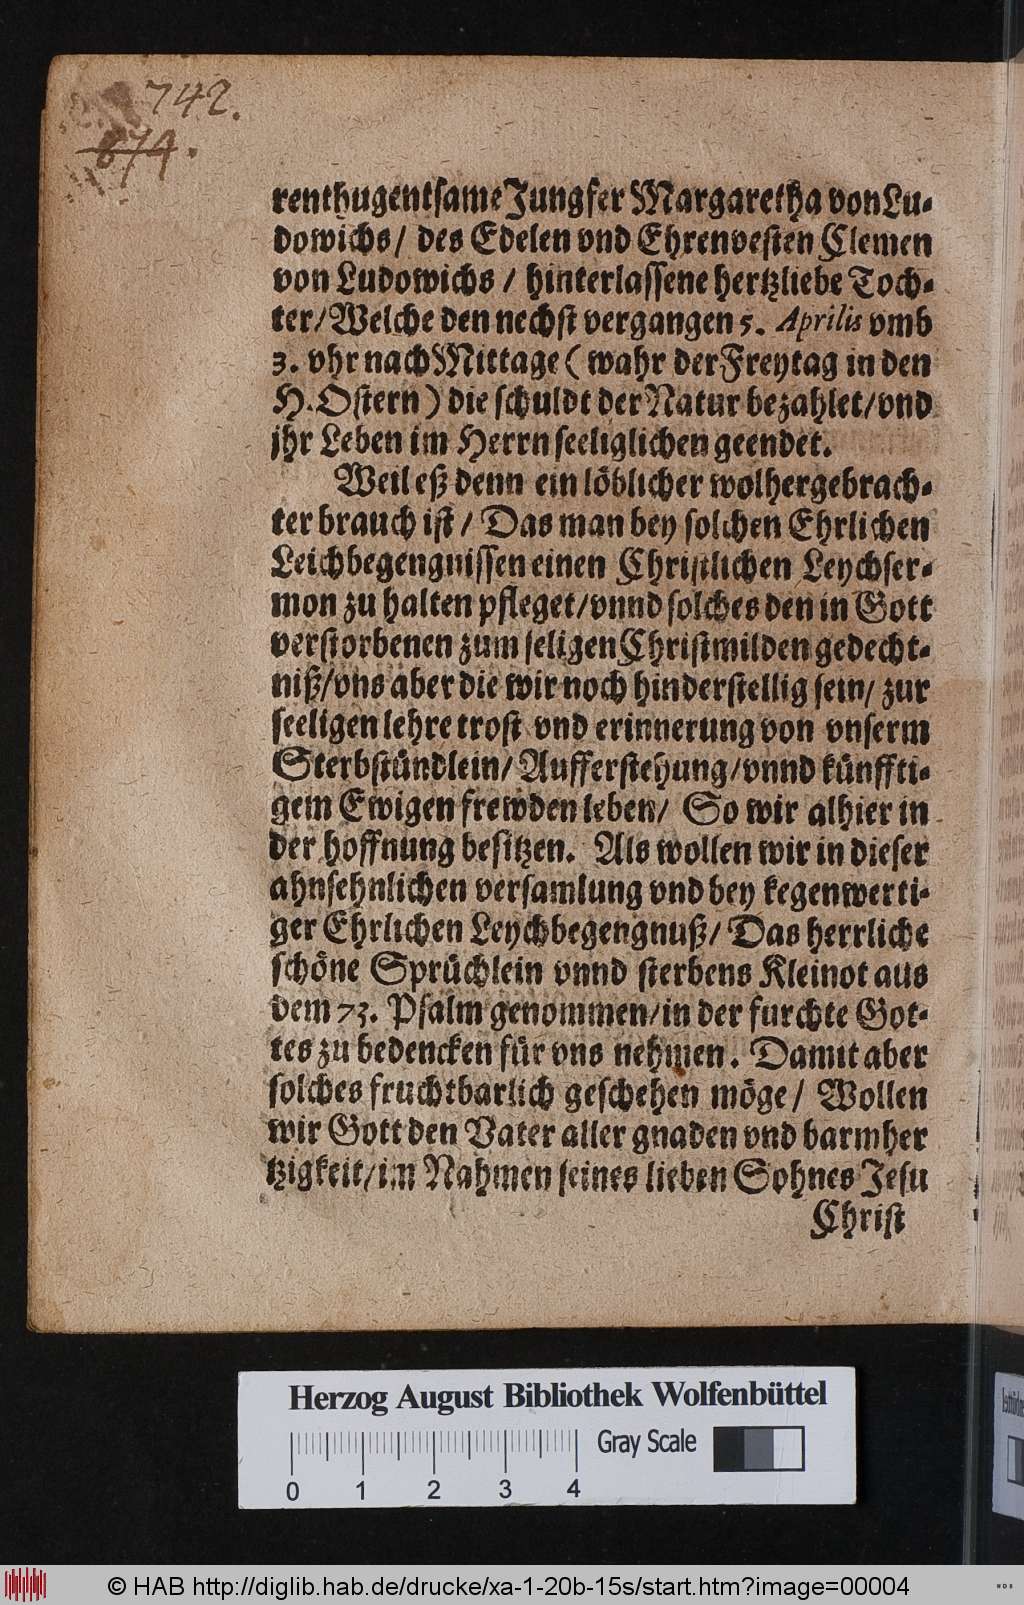 742.
674.
renthugentsame Jungfer Margaretha von Lu-
dowichs/ des Edelen vnd Ehrenvesten Clemen
von Ludowichs / hinterlassene hertzliebe Toch-
ter/ Welche den nechst vergangen 5. Aprilis vmb
3. vhr nach Mittage ( wahr der Freytag in den
H. Ostern ) die schuldt der Natur bezahlet/ vnd
jhr Leben im Herrn seeliglichen geendet.
Weil eß denn ein löblicher wolhergebrach-
ter brauch ist / Das man bey solchen Ehrlichen
Leichbegengnissen einen Christlichen Leychser-
mon zu halten pfleget/ vnnd solches den in Gott
verstorbenen zum seligen Christmilden gedecht-
niß/ vns aber die wir noch hinderstellig sein/ zur
seeligen lehre trost vnd erinnerung von vnserm
Sterbstündlein/ Aufferstehung/ vnnd künffti-
gem Ewigen frewden leben/ So wir alhier in
der hoffnung besitzen. Als wollen wir in dieser
ahnsehnlichen versamlung vnd bey kegenwerti-
ger Ehrlichen Leychbegengnuß/ Das herrliche
schöne Sprüchlein vnnd sterbens Kleinot aus
dem 73. Psalm genommen/ in der furchte Got-
tes zu bedencken für vns nehmen. Damit aber
solches fruchtbarlich geschehen möge/ Wollen
wir Gott den Vater aller gnaden vnd barmher
tzigkeit/ im Nahmen seines lieben Sohnes Jesu
Christ
Herzog August Bibliothek Wolfenbüttel
Gray Scale
0 1 2 3 4
© HAB http://diglib.hab.de/drucke/xa-1-20b-15s/start.htm?image=00004